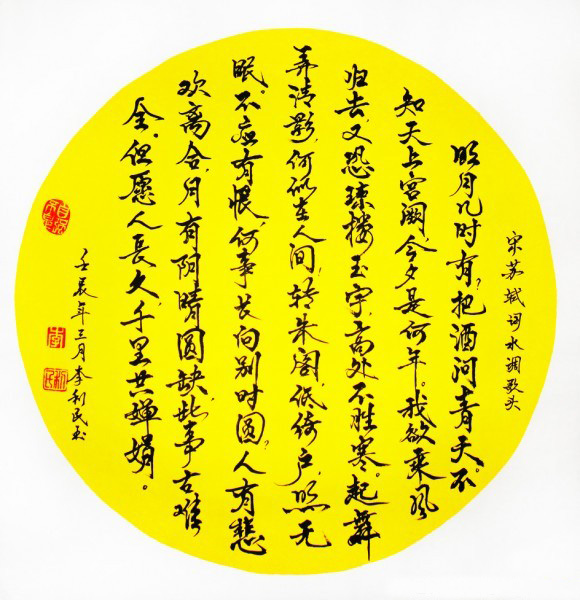 宋苏轼词水调歌头
明月几时有?把酒问青天。不
知天上宫阙,今夕是何年。我欲乘风
归去,又恐琼楼玉宇,高处不胜寒。起舞
弄清影,何似在人间,转朱阁,低绮户,照无
眠。不应有恨,何事长向别时圆,人有悲
欢离合,月有阴晴圆缺,此事古难
全。但愿人长久,千里共婵娟。
壬辰年三月李利民书